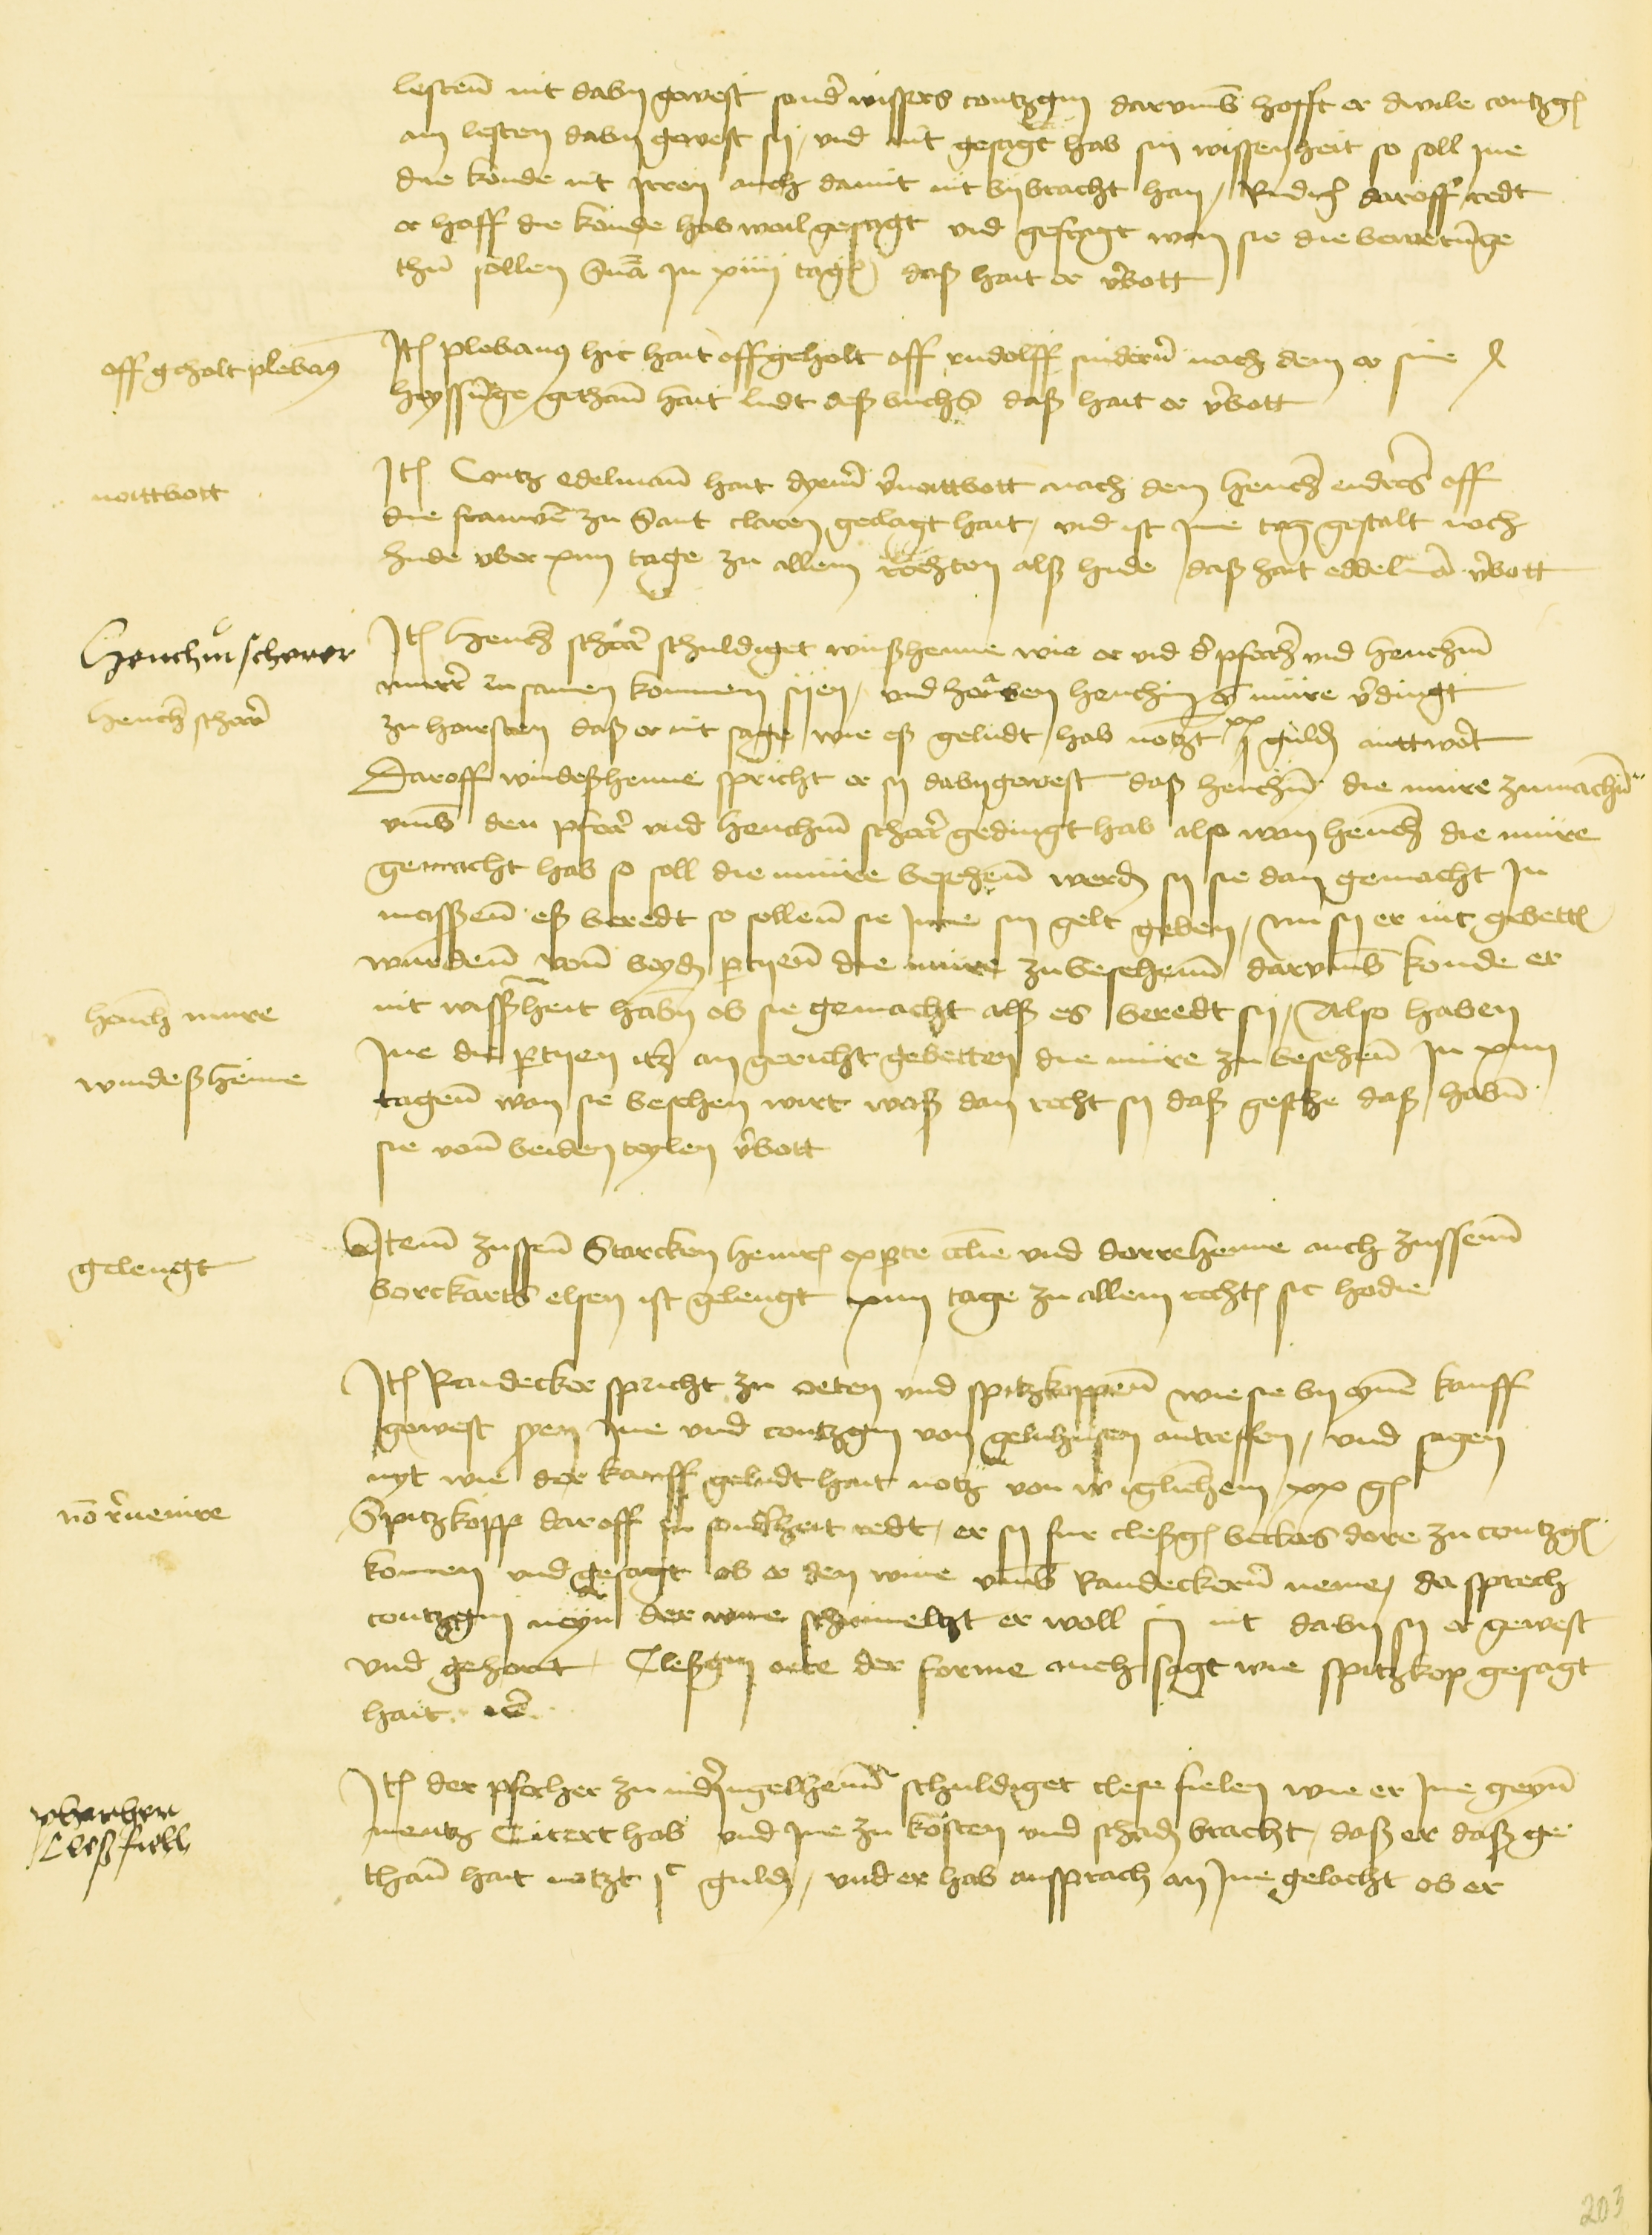 lesten nit daby gewest sonder wissers contzgin darvmb hofft er dwile contzgin
am lesten daby gewest sy / vnd nit gesagt hab sin wissenheit so soll ine
die konde nit irren auch damit nit bijbracht han / Rudiger daroff redt
er hoff die konde hab woil gesagt vnd gefragt wan sie die bewerunge
thun sollen Sna in xiiij tagen daß hait er verbott
offgeholt plebanus
Item plebanus hic hait offgeholt off rudolff sniderin nach dem er sine
heyssunge gethan hait ludt deß buchs daß hait er verbott
noittbott
Item Contz edelman hait vernoittbott nach dem Henchen endres off
die frauwen zu Sant claren geclagt hait / vnd ist ime tag gestalt noch
hude vber xiiij tage zu allem rechten alß hude daß hait eddelman verbott
Henchin scherer
Henchen scherer
Item Henchen scherer schuldiget winßhenne wie er vnd der pferher vnd Henchin
murer zusamen kommen syen / vnd haben Henchin ey mure verdingt
zu daß er nit sage wie eß geludt hab notzt xx gulden anttwert
Daroff windeßhenne spricht er sy daby gewest daß henchin die mure zumachen
vmb den pferrer vnd Henchin scherer gedingt hab also wan henchen die mure
gemacht hab so soll die mure besehen werden sy sie dan gemacht in
massen eß beredt so sollen sie ime sin gelt geben / nu sy er nit gebetten
wurden von beyden partyen die mure zubesehenn darvmb konde er
Henchen mure
nit wissenheit haben ob sie gemacht alß es beredt sy / Also haben
windeßhenne
ine die partyen itz an gericht gebetten die mure zu besehen in xiiij
tagen wan sie besehen wirt waß dan recht sy daß geschee daß haben
sie von beiden teylen verbott
gelengt
Item zussen Starcken henne ex parte clie vnd dorrehenne auch zussenn
borckarts elsen ist gelengt xiiij tage zu allem rechten sic hodie
Item Randecker spricht zu orten vnd spitzkoppen wie sie by eynem kauff
gewest syen ine vnd contzgin von gelnhusen antreffen / vnd sagen
nyt wie der kauff geludt hait notz von ir iglichem xx gulden
non reuenire
Spitzkopp daroff in sonderheit redt / er sy fur cleßgin beckers dore zu contzgin
komen vnd gesagt ob er den wine vmb Randeckern neme / da sprech
contzgin neyn der wine schimeltzt er woll sin nit daby sy er gewest
vnd gehort / Cleßgin orte der forme auch sagt wie spitzkop gesagt
hait
Item der pferher zu nider ingelheim schuldiget clese fielen wie er ine geyn
pharher
Cleß fiell
mentz Citert hab vnd ine zu kosten vnd schaden bracht / daß er daß ge
than hait notzt jc gulden / vnd er hab ansprach an ine gelacht ob er
203